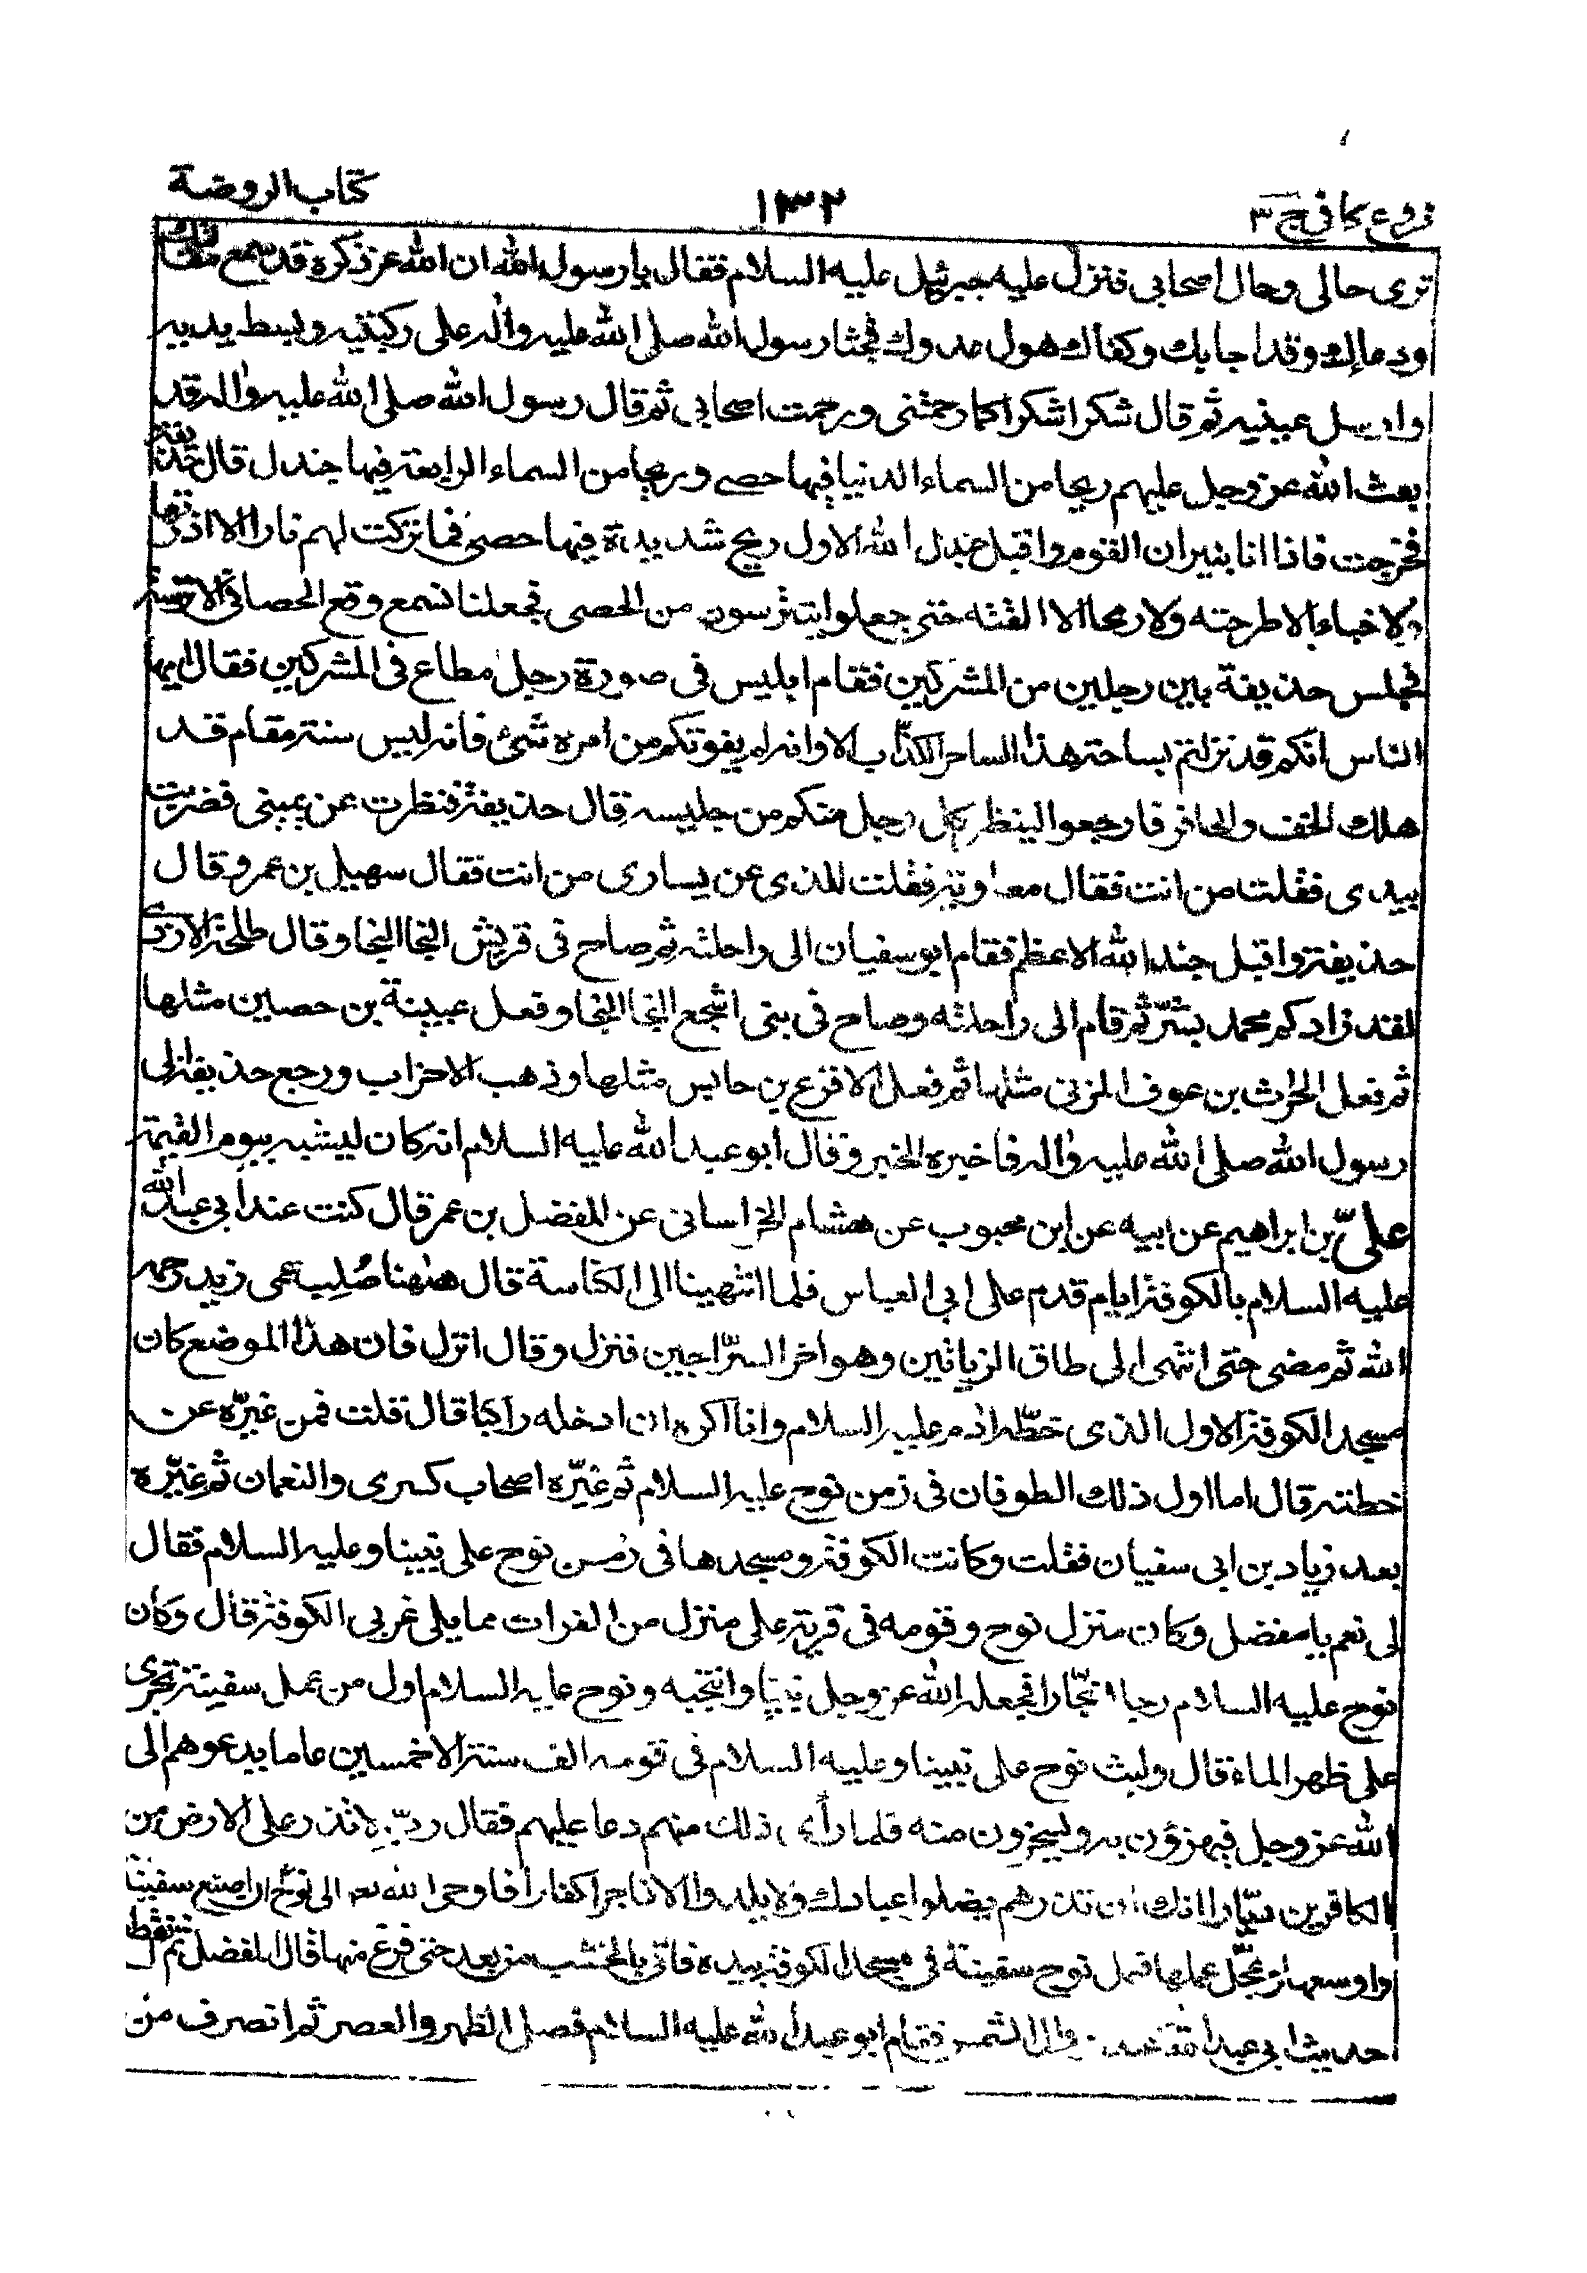 فروع كافي ج ٣ ١٣٢ كتاب الروضة
ترى حالى وحال اصحابى فنزل عليه جبرئيل عليه السلام فقال يا رسول الله ان الله عز ذكره قد سمع مقالتك
ودعاءك وقد اجابك وكفاك هول عدوك فجثا رسول الله صلى الله عليه واله على ركبتيه وبسط يديه
وارسل عينيه ثم قال شكرا شكرا كما رحمتنى ورحمت اصحابى ثم قال رسول الله صلى الله عليه واله قد
بعث الله عز وجل عليهم ريحا من السماء الدنيا فيها حصى وريحا من السماء الرابعة فيها جندل قال حذيفة
فخرجت فاذا انا بنيران القوم واقبل جند الله الاول ريح شديدة فيها حصى فما تركت لهم نارا الا اذرتها
ولا خباء الا طرحته ولا رمحا الا القته حتى جعلوا يتترسون من الحصى فجعلنا نسمع وقع الحصا فى الاترسة
فجلس حذيفة بين رجلين من المشركين فقام ابليس فى صورة رجل مطاع فى المشركين فقال ايها
الناس انكم قد نزلتم بساحة هذا الساحر الكذّاب الا وانه لم يفوتكم من امره شئ فانه ليس سنة مقام قد
هلك الخف والحافر فارجعوا لينظر كل رجل منكم من جليسه قال حذيفة فنظرت عن يمينى فضربت
بيدى فقلت من انت فقال معاوية فقلت للذى عن يسارى من انت فقال سهيل بن عمرو قال
حذيفة واقبل جند الله الاعظم فقام ابو سفيان الى راحلته ثم صاح فى قريش النجا النجا وقال طلحة الازدى
لقد زادكم محمد بشرّ ثم قام الى راحلته وصاح فى بنى اشجع النجا النجا وفعل عيينة بن حصين مثلها
ثم فعل الحرث بن عوف المزنى مثلها ثم فعل الاقرع بن حابس مثلها وذهب الاحزاب ورجع حذيفة الى
رسول الله صلى الله عليه واله فاخبره الخبر وقال ابو عبد الله عليه السلام انه كان ليشبه بيوم القيمة
علىّ بن ابراهيم عن ابيه عن ابن محبوب عن هشام الخراسانى عن المفضل بن عمر قال كنت عند ابى عبد الله
عليه السلام بالكوفة ايام قدم على ابى العباس فلما انتهينا الى الكناسة قال ههنا صُلِب عمى زيد رحمه
الله ثم مضى حتى انتهى الى طاق الزياتين وهو اخر السرّاجين فنزل وقال انزل فان هذا الموضع كان
مسجد الكوفة الاول الذى خطّه ادم عليه السلام وانا اكره ان ادخله راكبا قال قلت فمن غيّره عن
خطته قال اما اول ذلك الطوفان فى زمن نوح عليه السلام ثم غيّره اصحاب كسرى والنعمان ثم غيّره
بعد زياد بن ابى سفيان فقلت وكانت الكوفة ومسجدها فى زمن نوح على نبينا وعليه السلام فقال
لى نعم يا مفضل وكان منزل نوح وقومه فى قرية على منزل من الفرات مما يلى غربى الكوفة قال وكان
نوح عليه السلام رجلا نجّارا فجعله الله عز وجل نبيّا وانتجبه ونوح عليه السلام اول من عمل سفينة تجرى
على ظهر الماء قال ولبث نوح على نبينا وعليه السلام فى قومه الف سنة الا خمسين عاما يدعوهم الى
الله عز وجل فيهزؤن به ويسخرون منه فلما رأى ذلك منهم دعا عليهم فقال ربّ لا تذر على الارض من
الكافرين ديّارا انك ان تذرهم يضلوا عبادك ولا يلدوا الا فاجرا كفارا فاوحى الله الى نوح ان اصنع سفينة
واوسعها وعجّل عملها فعمل نوح سفينة فى مسجد الكوفة بيده فاتى بالخشب من بعد حتى فرغ منها قال المفضل ثم انقطع
حديث ابى عبد الله عند زوال الشمس فقام ابو عبد الله عليه السلام فصلى الظهر والعصر ثم انصرف من